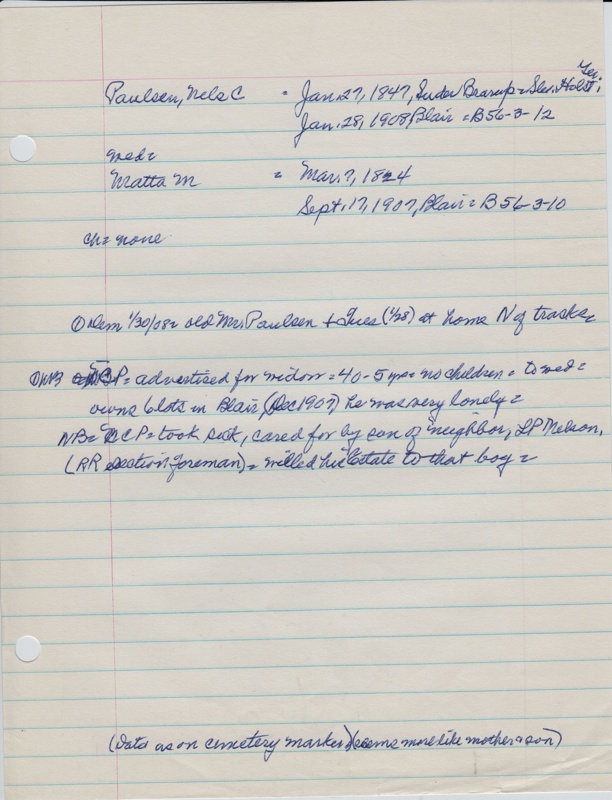 Ger.
Paulsen, Nels C = Jan. 27, 1847, Suder Brarup = Sles. Holst.,
Jan. 28, 1908, Blair = B56-3-12
med=
Matta M = Mar. 7, 1824
Sept. 17, 1907, Blair = B56-3-10
ch= none
Dem 1/30/08= old Mr. Paulsen + Tues (1/28) at home N of tracks=
P= advertised for widow = 40-5 = no children = to wed =
owns 6 lots in Blair (Dec 1907) he was very lonely =
NB= CP= took sick, cared for by son of neighbor, LP Nelson,
(RR section foreman) = willed his Estate to that boy =
(Data as on cemetery marker) (seems more like mother & son)